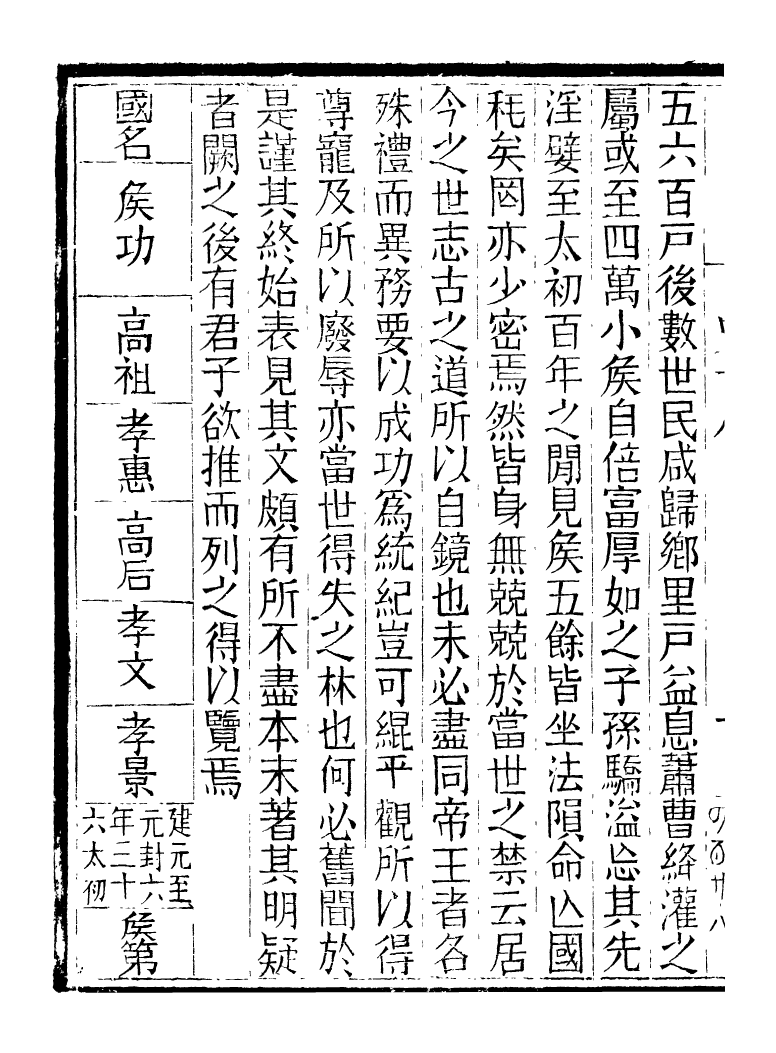 五六百戸後數世民咸歸鄉里戸益息蕭曹絳灌之
屬或至四萬小侯自倍富厚如之子孫驕溢忘其先
淫嬖至太初百年之閒見侯五餘皆坐法隕命亡國
秏矣罔亦少密焉然皆身無兢兢於當世之禁云居
今之世志古之道所以自鏡也未必盡同帝王者各
殊禮而異務要以成功爲統紀豈可緄乎觀所以得
尊寵及所以廢辱亦當世得失之林也何必舊聞於
是謹其終始表見其文頗有所不盡本末著其明疑
者闕之後有君子欲推而列之得以覽焉
國名
侯功
高祖
孝惠
高后
孝文
孝景
建元至
元封六
年三十
六太初
侯第